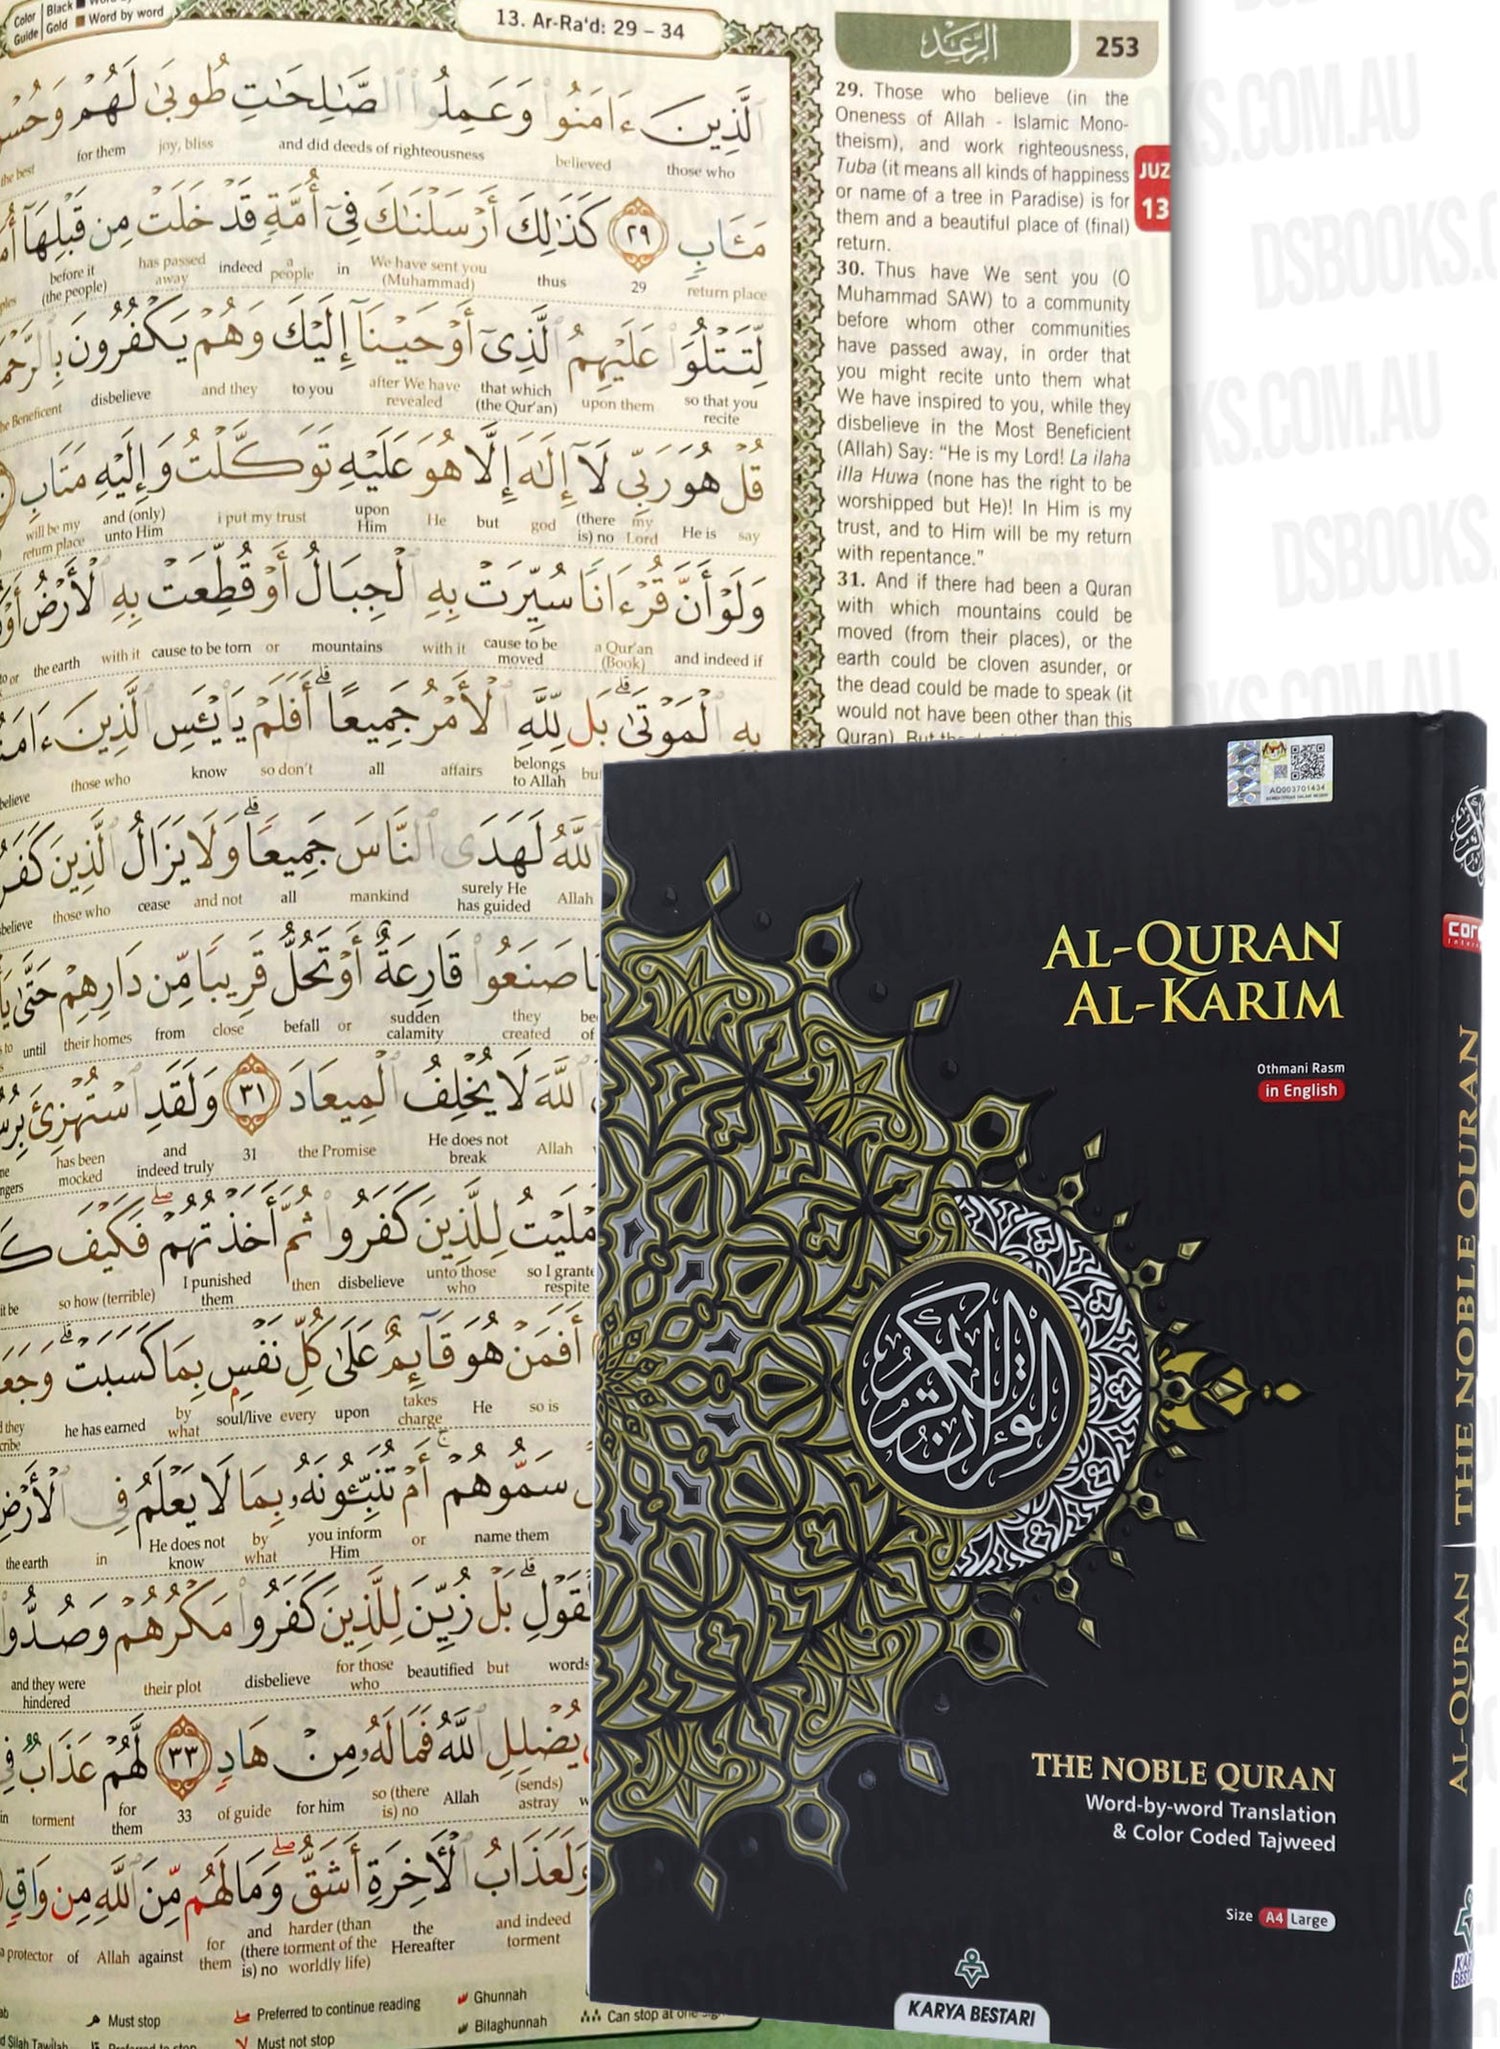 Color Guide
Black
Gold Word by word
13. Ar-Ra'd: 29 – 34
الرَّعْد
253
JUZ
13
ٱلَّذِينَ ءَامَنُوا۟ وَعَمِلُوا۟ ٱلصَّـٰلِحَـٰتِ طُوبَىٰ لَهُمْ
those who believed and did deeds of righteousness joy, bliss for them the best
مَـَٔابٍ ٢٩ كَذَٰلِكَ أَرْسَلْنَـٰكَ فِىٓ أُمَّةٍ قَدْ خَلَتْ مِن قَبْلِهَآ
return place 29 thus We have sent you (Muhammad) in a people indeed has passed away before it (the people)
لِّتَتْلُوَا۟ عَلَيْهِمُ ٱلَّذِىٓ أَوْحَيْنَآ إِلَيْكَ وَهُمْ يَكْفُرُونَ
so that you recite upon them that which (the Qur'an) after We have revealed to you and they disbelieve Beneficent
قُلْ هُوَ رَبِّى لَآ إِلَـٰهَ إِلَّا هُوَ عَلَيْهِ تَوَكَّلْتُ وَإِلَيْهِ مَتَابِ
say He is my Lord (there is) no god but He upon Him i put my trust and (only) unto Him will be my return place
وَلَوْ أَنَّ قُرْءَانًا سُيِّرَتْ بِهِ ٱلْجِبَالُ أَوْ قُطِّعَتْ بِهِ ٱلْأَرْضُ أَوْ
and indeed if a Qur'an (Book) cause to be moved with it mountains or cause to be torn with it the earth or
بِهِ ٱلْمَوْتَىٰ ۗ بَل لِّلَّهِ ٱلْأَمْرُ جَمِيعًا ۗ أَفَلَمْ يَا۟يْـَٔسِ ٱلَّذِينَ
belongs to Allah affairs all so don't know those who believe
ٱللَّهُ لَهَدَى ٱلنَّاسَ جَمِيعًا ۗ وَلَا يَزَالُ ٱلَّذِينَ
Allah surely He has guided mankind all and not cease those who
صَنَعُوا۟ قَارِعَةٌ أَوْ تَحُلُّ قَرِيبًا مِّن دَارِهِمْ حَتَّىٰ
they created sudden calamity or befall close from their homes until
ٱللَّهَ لَا يُخْلِفُ ٱلْمِيعَادَ ٣١ وَلَقَدِ ٱسْتُهْزِئَ
Allah He does not break the Promise 31 and indeed truly has been mocked
لِلَّذِينَ كَفَرُوا۟ ثُمَّ أَخَذْتُهُمْ ۖ فَكَيْفَ
respite unto those who disbelieve then I punished them so how (terrible)
أَفَمَنْ هُوَ قَآئِمٌ عَلَىٰ كُلِّ نَفْسٍۭ بِمَا كَسَبَتْ ۗ
so is He takes charge upon every soul/live by what he has earned
سَمُّوهُمْ ۚ أَمْ تُنَبِّـُٔونَهُۥ بِمَا لَا يَعْلَمُ فِى ٱلْأَرْضِ
name them or you inform Him by what He does not know in the earth
ٱلْقَوْلِ ۗ بَلْ زُيِّنَ لِلَّذِينَ كَفَرُوا۟ مَكْرُهُمْ وَصُدُّوا۟
words but beautified for those who disbelieve their plot and they were hindered
يُضْلِلِ ٱللَّهُ فَمَا لَهُۥ مِنْ هَادٍ ٣٣ لَّهُمْ عَذَابٌ
(sends) astray Allah so (there is) no for him of guide 33 for them torment in
وَلَعَذَابُ ٱلْـَٔاخِرَةِ أَشَقُّ ۖ وَمَا لَهُم مِّنَ ٱللَّهِ مِن وَاقٍ
and indeed torment the Hereafter harder (than torment of the worldly life) and (there is) no for them against Allah of protector
Must stop
Preferred to continue reading
Must not stop
Ghunnah
Bilaghunnah
Can stop at one
29. Those who believe (in the
Oneness of Allah - Islamic Mono-
theism), and work righteousness,
Tuba (it means all kinds of happiness
or name of a tree in Paradise) is for
them and a beautiful place of (final)
return.
30. Thus have We sent you (O
Muhammad SAW) to a community
before whom other communities
have passed away, in order that
you might recite unto them what
We have inspired to you, while they
disbelieve in the Most Beneficient
(Allah) Say: “He is my Lord! La ilaha
illa Huwa (none has the right to be
worshipped but He)! In Him is my
trust, and to Him will be my return
with repentance.”
31. And if there had been a Quran
with which mountains could be
moved (from their places), or the
earth could be cloven asunder, or
the dead could be made to speak (it
would not have been other than this
Quran) But
AQ003701434
AL-QURAN
AL-KARIM
Othmani Rasm
in English
القرآن الكريم
THE NOBLE QURAN
Word-by-word Translation
& Color Coded Tajweed
Size A4 Large
KARYA BESTARI
AL-QURAN THE NOBLE QURAN
DSBOOKS.COM.AU